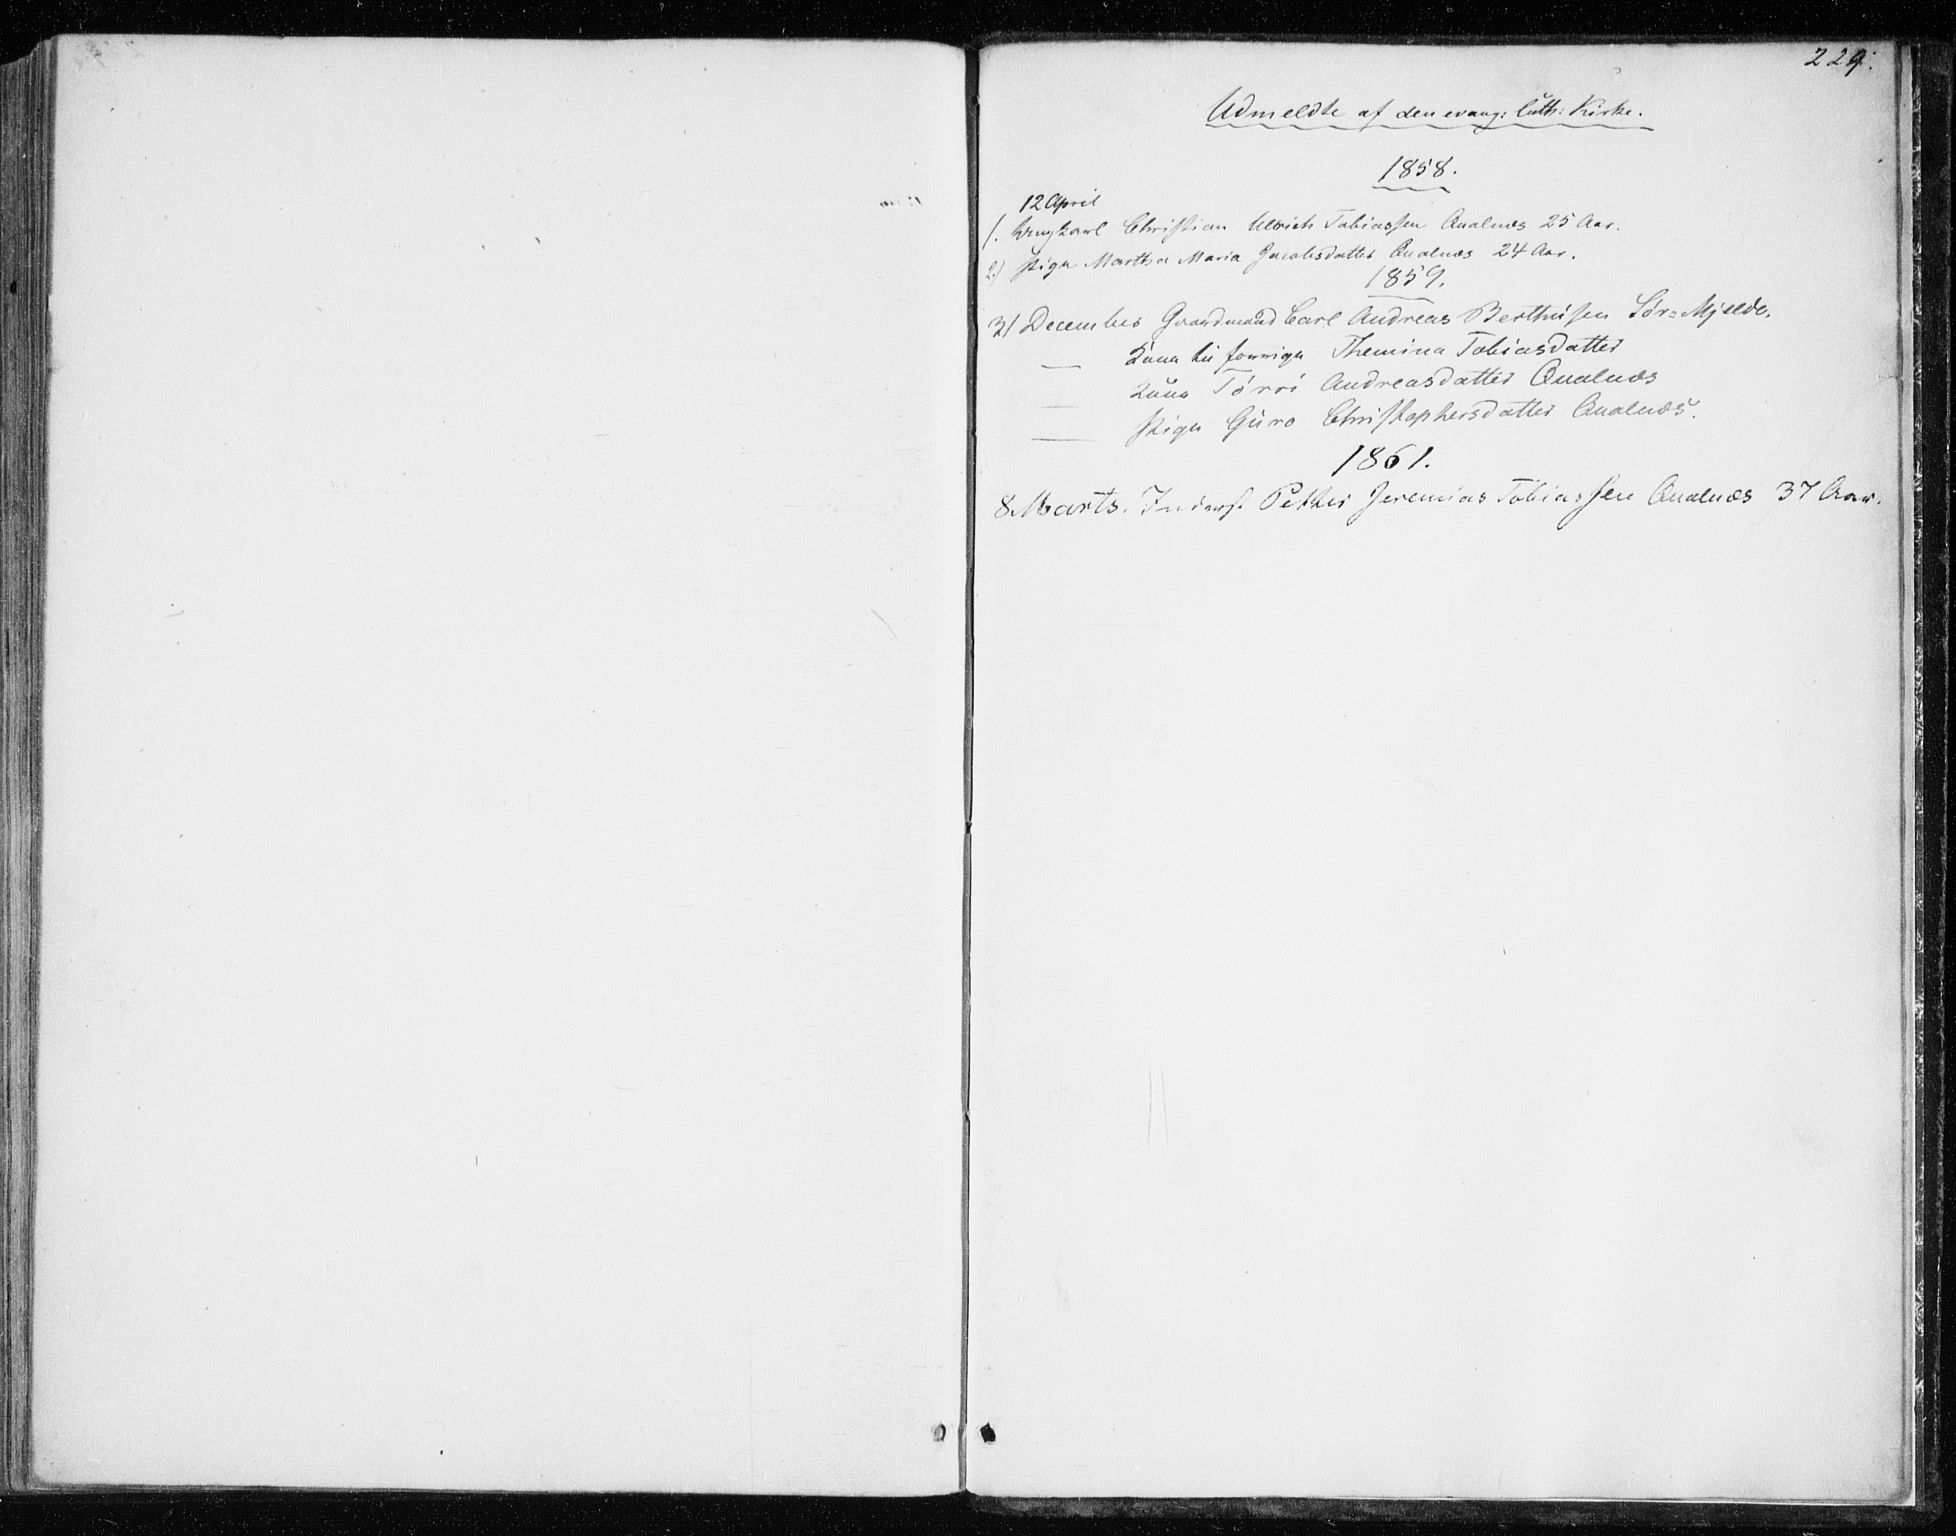 229.
Udmeldte af den evang: luth: Kirke.
1858.
12 April
1. Ungkarl Christian Ulrich Tobiassen Qualnæs 25 Aar.
2) Pige Martha Maria Jacobsdatter Qualnæs 24 Aar.
1859.
31 December Gaardmand Carl Andreas Berthusen Sør=Mjelde.
— Kona til forrige Themina Tobiasdatter
— Kona Torri Andreasdatter Qualnæs
— Pige Guro Christophersdatter Qualnæs.
1861.
8 Marts. Inderst Petter Jeremias Tobiassen Qualnæs 37 Aar.